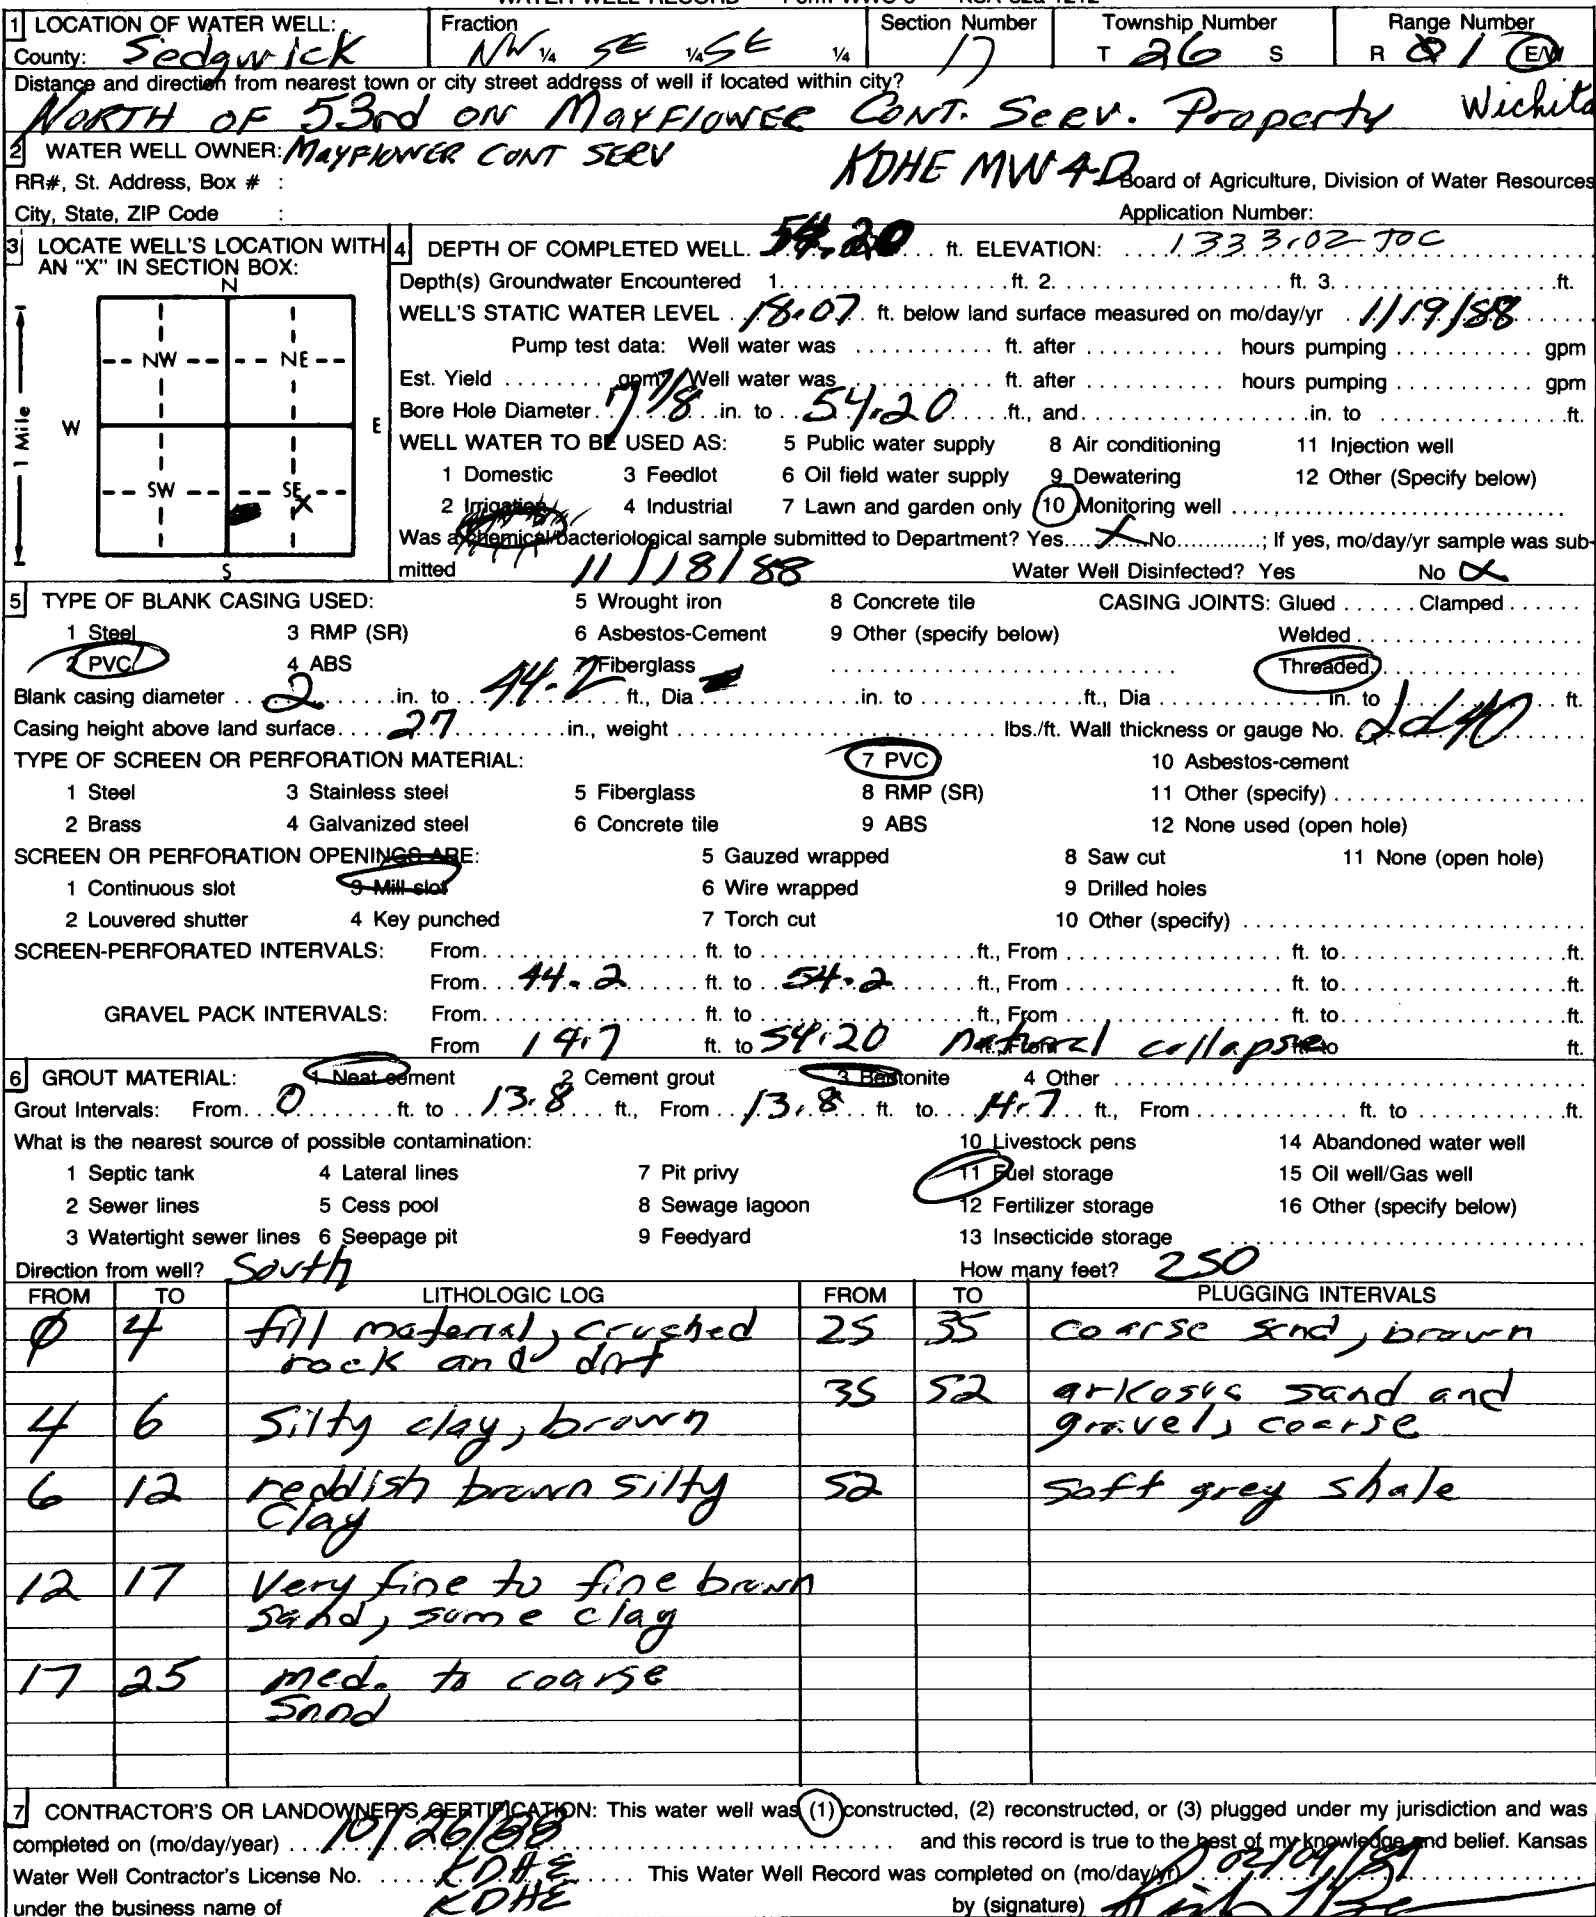 1 LOCATION OF WATER WELL: Fraction Section Number Township Number Range Number
County: Sedgwick NW ¼ SE ¼ SE ¼ 17 T 26 S R 01 E/W
Distance and direction from nearest town or city street address of well if located within city?
NORTH OF 53rd ON MAYFLOWER CONT. SERV. Property Wichita
2 WATER WELL OWNER: MAYFLOWER CONT SERV
RR#, St. Address, Box # : KDHE MW 4-D Board of Agriculture, Division of Water Resources
City, State, ZIP Code : Application Number:
3 LOCATE WELL'S LOCATION WITH AN "X" IN SECTION BOX:
N
NW NE
W E
SW SE X
S
1 Mile
4 DEPTH OF COMPLETED WELL. 54.20 ft. ELEVATION: 1333.02 TOC
Depth(s) Groundwater Encountered 1. ft. 2. ft. 3. ft.
WELL'S STATIC WATER LEVEL 18.07 ft. below land surface measured on mo/day/yr 1/19/88
Pump test data: Well water was ft. after hours pumping gpm
Est. Yield gpm Well water was ft. after hours pumping gpm
Bore Hole Diameter 7 7/8 in. to 54.20 ft., and in. to ft.
WELL WATER TO BE USED AS: 5 Public water supply 8 Air conditioning 11 Injection well
1 Domestic 3 Feedlot 6 Oil field water supply 9 Dewatering 12 Other (Specify below)
2 Irrigation 4 Industrial 7 Lawn and garden only 10 Monitoring well
Was a chemical/bacteriological sample submitted to Department? Yes X No ; If yes, mo/day/yr sample was sub-
mitted 11/18/88 Water Well Disinfected? Yes No X
5 TYPE OF BLANK CASING USED: 5 Wrought iron 8 Concrete tile CASING JOINTS: Glued Clamped
1 Steel 3 RMP (SR) 6 Asbestos-Cement 9 Other (specify below) Welded
2 PVC 4 ABS 7 Fiberglass Threaded
Blank casing diameter 2 in. to 44.2 ft., Dia in. to ft., Dia in. to ft.
Casing height above land surface 27 in., weight lbs./ft. Wall thickness or gauge No.
TYPE OF SCREEN OR PERFORATION MATERIAL: 7 PVC 10 Asbestos-cement
1 Steel 3 Stainless steel 5 Fiberglass 8 RMP (SR) 11 Other (specify)
2 Brass 4 Galvanized steel 6 Concrete tile 9 ABS 12 None used (open hole)
SCREEN OR PERFORATION OPENINGS ARE: 5 Gauzed wrapped 8 Saw cut 11 None (open hole)
1 Continuous slot 3 Mill slot 6 Wire wrapped 9 Drilled holes
2 Louvered shutter 4 Key punched 7 Torch cut 10 Other (specify)
SCREEN-PERFORATED INTERVALS: From ft. to ft., From ft. to ft.
From 44.2 ft. to 54.2 ft., From ft. to ft.
GRAVEL PACK INTERVALS: From ft. to ft., From ft. to ft.
From 14.7 ft. to 54.20 natural collapse ft.
6 GROUT MATERIAL: 1 Neat cement 2 Cement grout 3 Bentonite 4 Other
Grout Intervals: From 0 ft. to 13.8 ft., From 13.8 ft. to 14.7 ft., From ft. to ft.
What is the nearest source of possible contamination: 10 Livestock pens 14 Abandoned water well
1 Septic tank 4 Lateral lines 7 Pit privy 11 Fuel storage 15 Oil well/Gas well
2 Sewer lines 5 Cess pool 8 Sewage lagoon 12 Fertilizer storage 16 Other (specify below)
3 Watertight sewer lines 6 Seepage pit 9 Feedyard 13 Insecticide storage
Direction from well? South How many feet? 250
FROM TO LITHOLOGIC LOG FROM TO PLUGGING INTERVALS
0 4 fill material, crushed 25 35 coarse sand, brown
rock and dirt
35 52 arkosic sand and
4 6 Silty clay, brown gravel, coarse
6 12 reddish brown silty 52 soft grey shale
Clay
12 17 Very fine to fine brown
sand, some clay
17 25 med. to coarse
Sand
7 CONTRACTOR'S OR LANDOWNER'S CERTIFICATION: This water well was (1) constructed, (2) reconstructed, or (3) plugged under my jurisdiction and was
completed on (mo/day/year) 10/26/88 and this record is true to the best of my knowledge and belief. Kansas
Water Well Contractor's License No. KDHE This Water Well Record was completed on (mo/day/yr) 02/09/89
under the business name of KDHE by (signature)